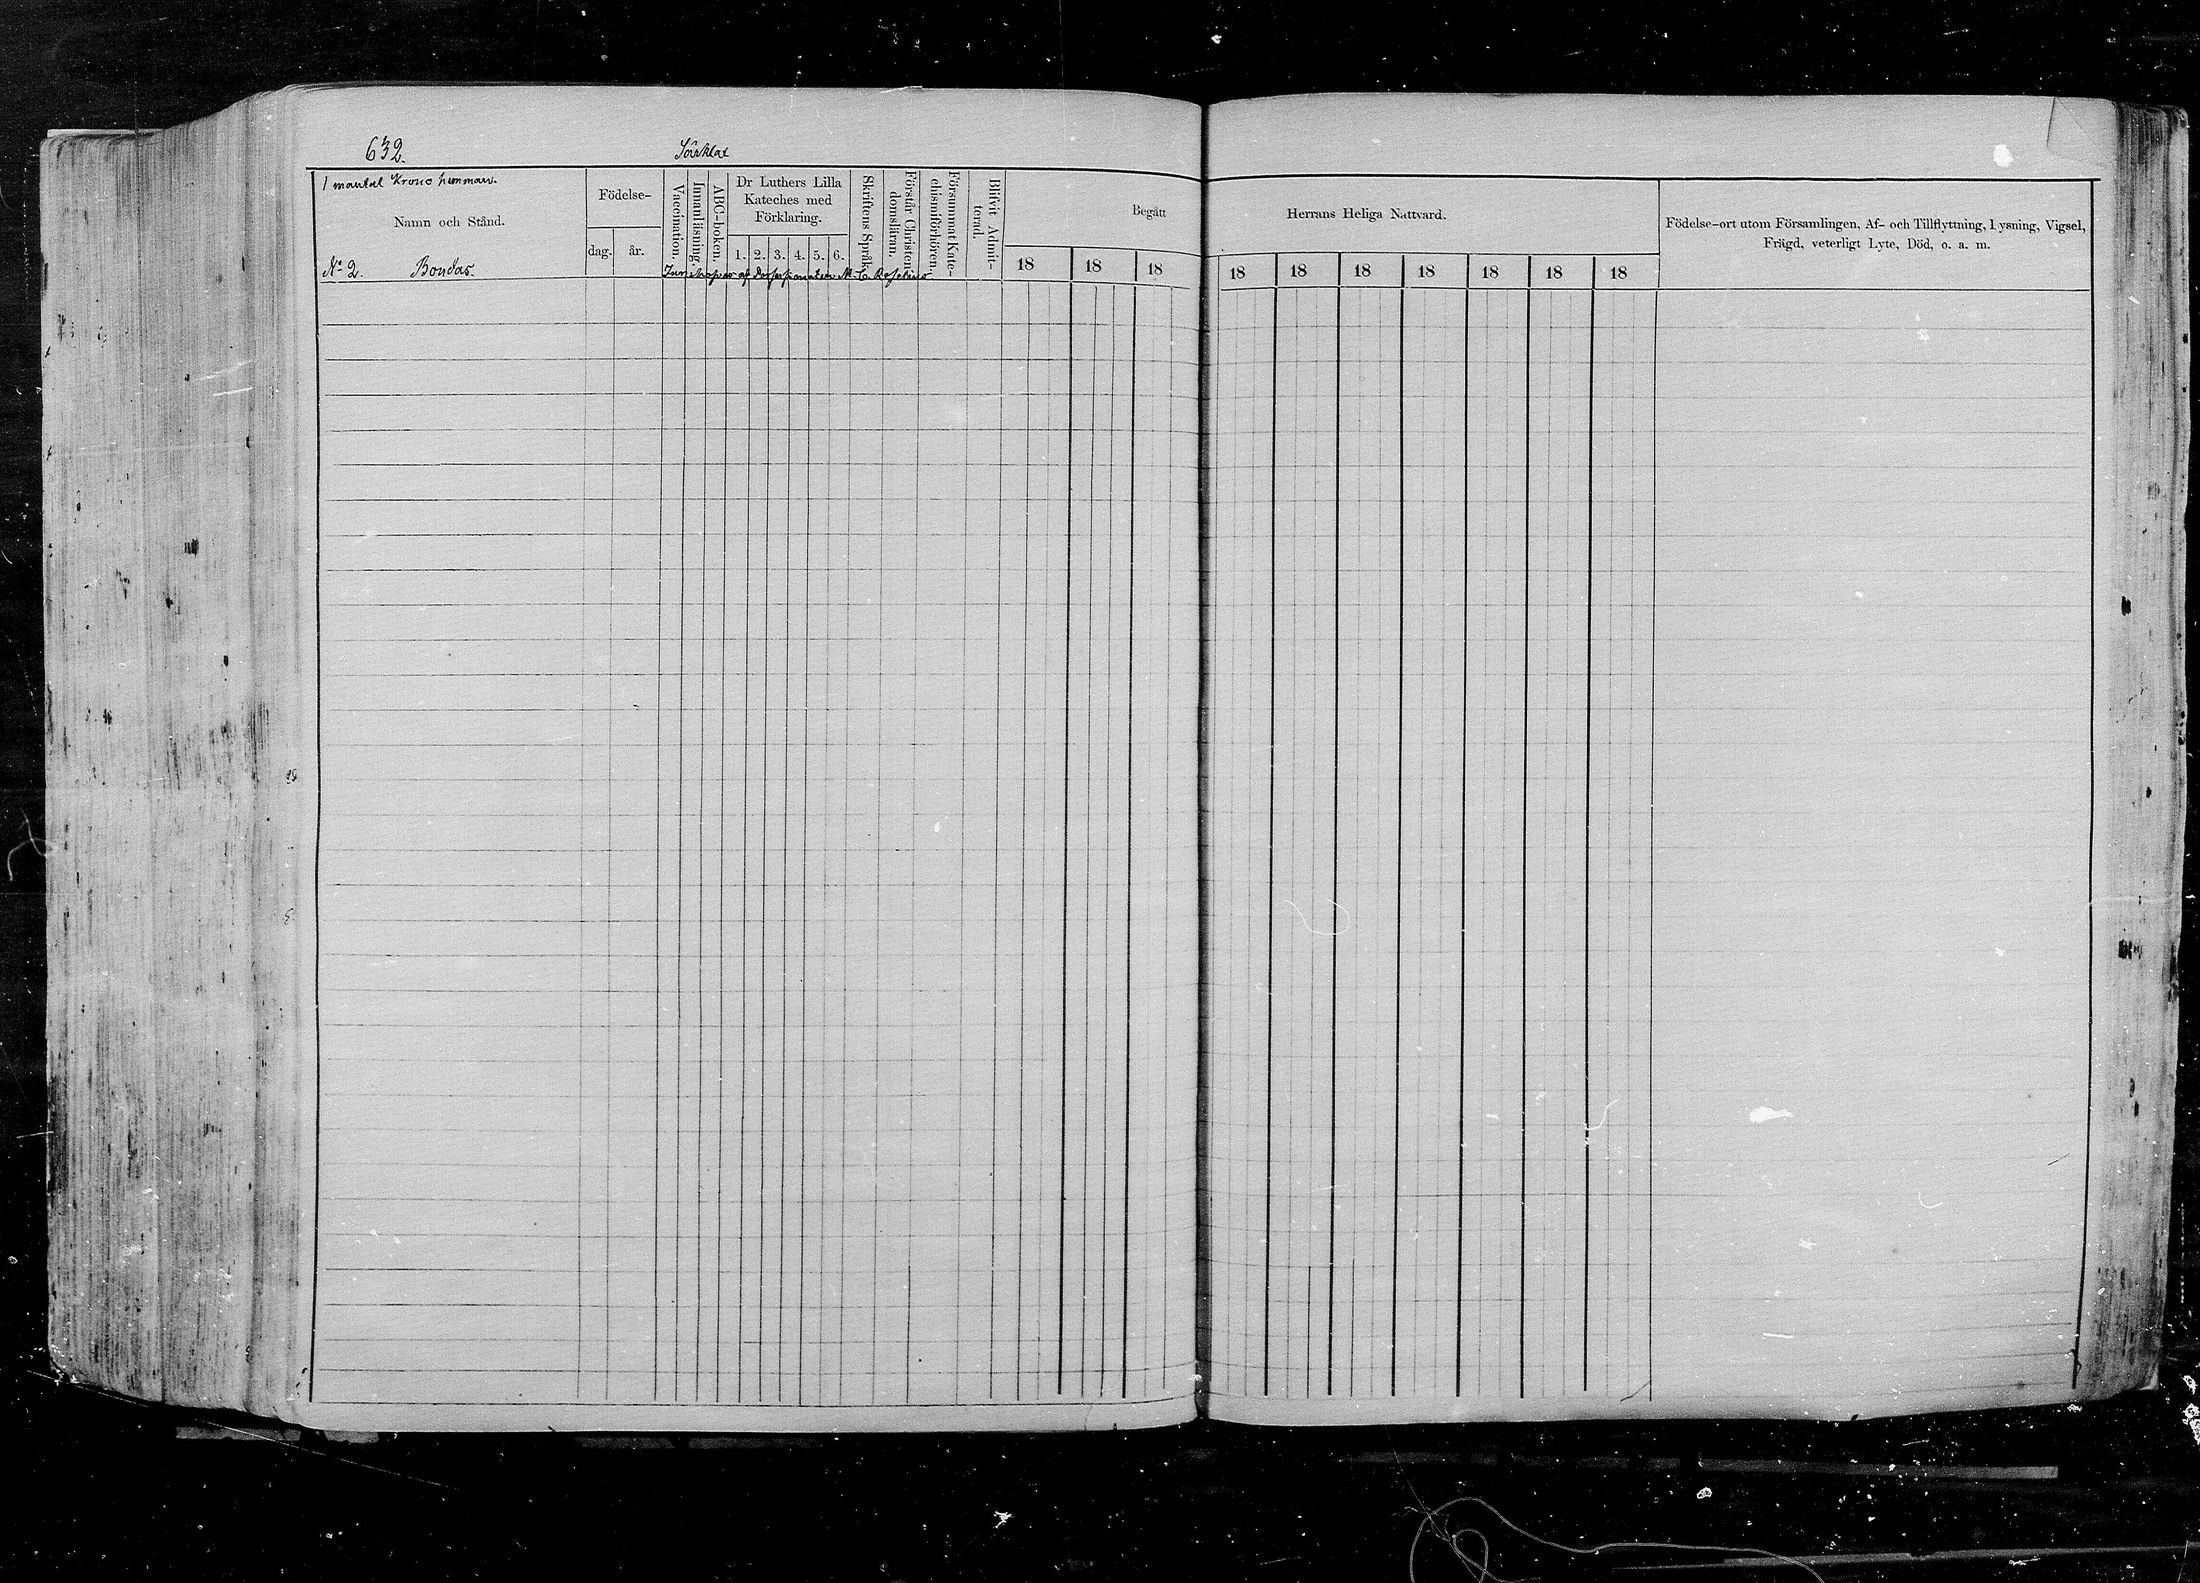 632.
Sörklax
1 mantal Krono hemman.
Namn och Stånd.
No 2. Bondas.
Födelse-
dag. år.
Vaccination.
Innanläsning.
ABC-boken.
Dr Luthers Lilla
Kateches med
Förklaring.
1. 2. 3. 4. 5. 6.
Skriftens Språk.
Förstår Christen-
domsläran.
Försummat Kate-
chismiförhören.
Blifvit Admit-
terad.
Begått
18 18 18
af M. C.
Herrans Heliga Nattvard.
18 18 18 18 18 18 18
Födelse-ort utom Församlingen, Af- och Tillflyttning, Lysning, Vigsel,
Frägd, veterligt Lyte, Död, o. a. m.